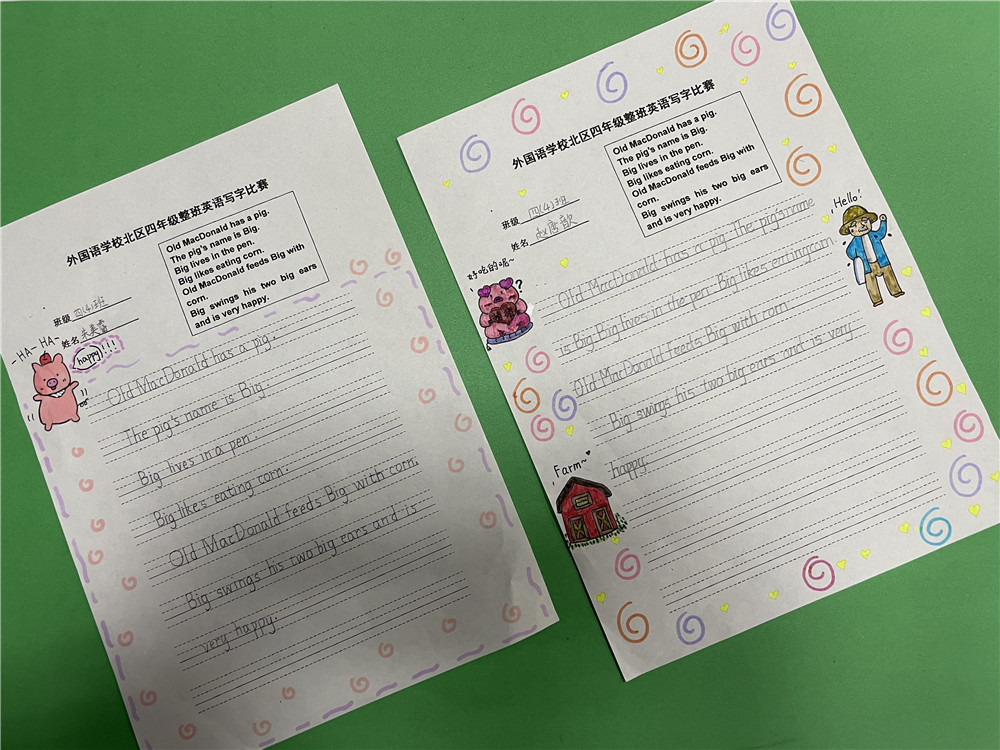 外国语学校北区四年级整班英语写字比赛
Old MacDonald has a pig.
The pig's name is Big.
Big lives in the pen.
Big likes eating corn.
Old MacDonald feeds Big with
corn.
Big swings his two big ears
and is very happy.
班级 四(4)班
姓名
-HA-HA-
happy!!!
Old MacDonald has a pig.
The pig's name is Big.
Big lives in a pen.
Big likes eating corn.
Old MacDonald feeds Big with corn.
Big swings his two big ears and is
very happy.
外国语学校北区四年级整班英语写字比赛
Old MacDonald has a pig.
The pig's name is Big.
Big lives in the pen.
Big likes eating corn.
Old MacDonald feeds Big with
corn.
Big swings his two big ears
and is very happy.
班级 四(4)班
姓名
好吃的呢~
?
Hello!
Old MacDonald has a pig. The pig's name
is Big. Big lives in the pen. Big likes eating corn.
Old MacDonald feeds Big with corn.
Big swings his two big ears and is very
happy.
Farm~